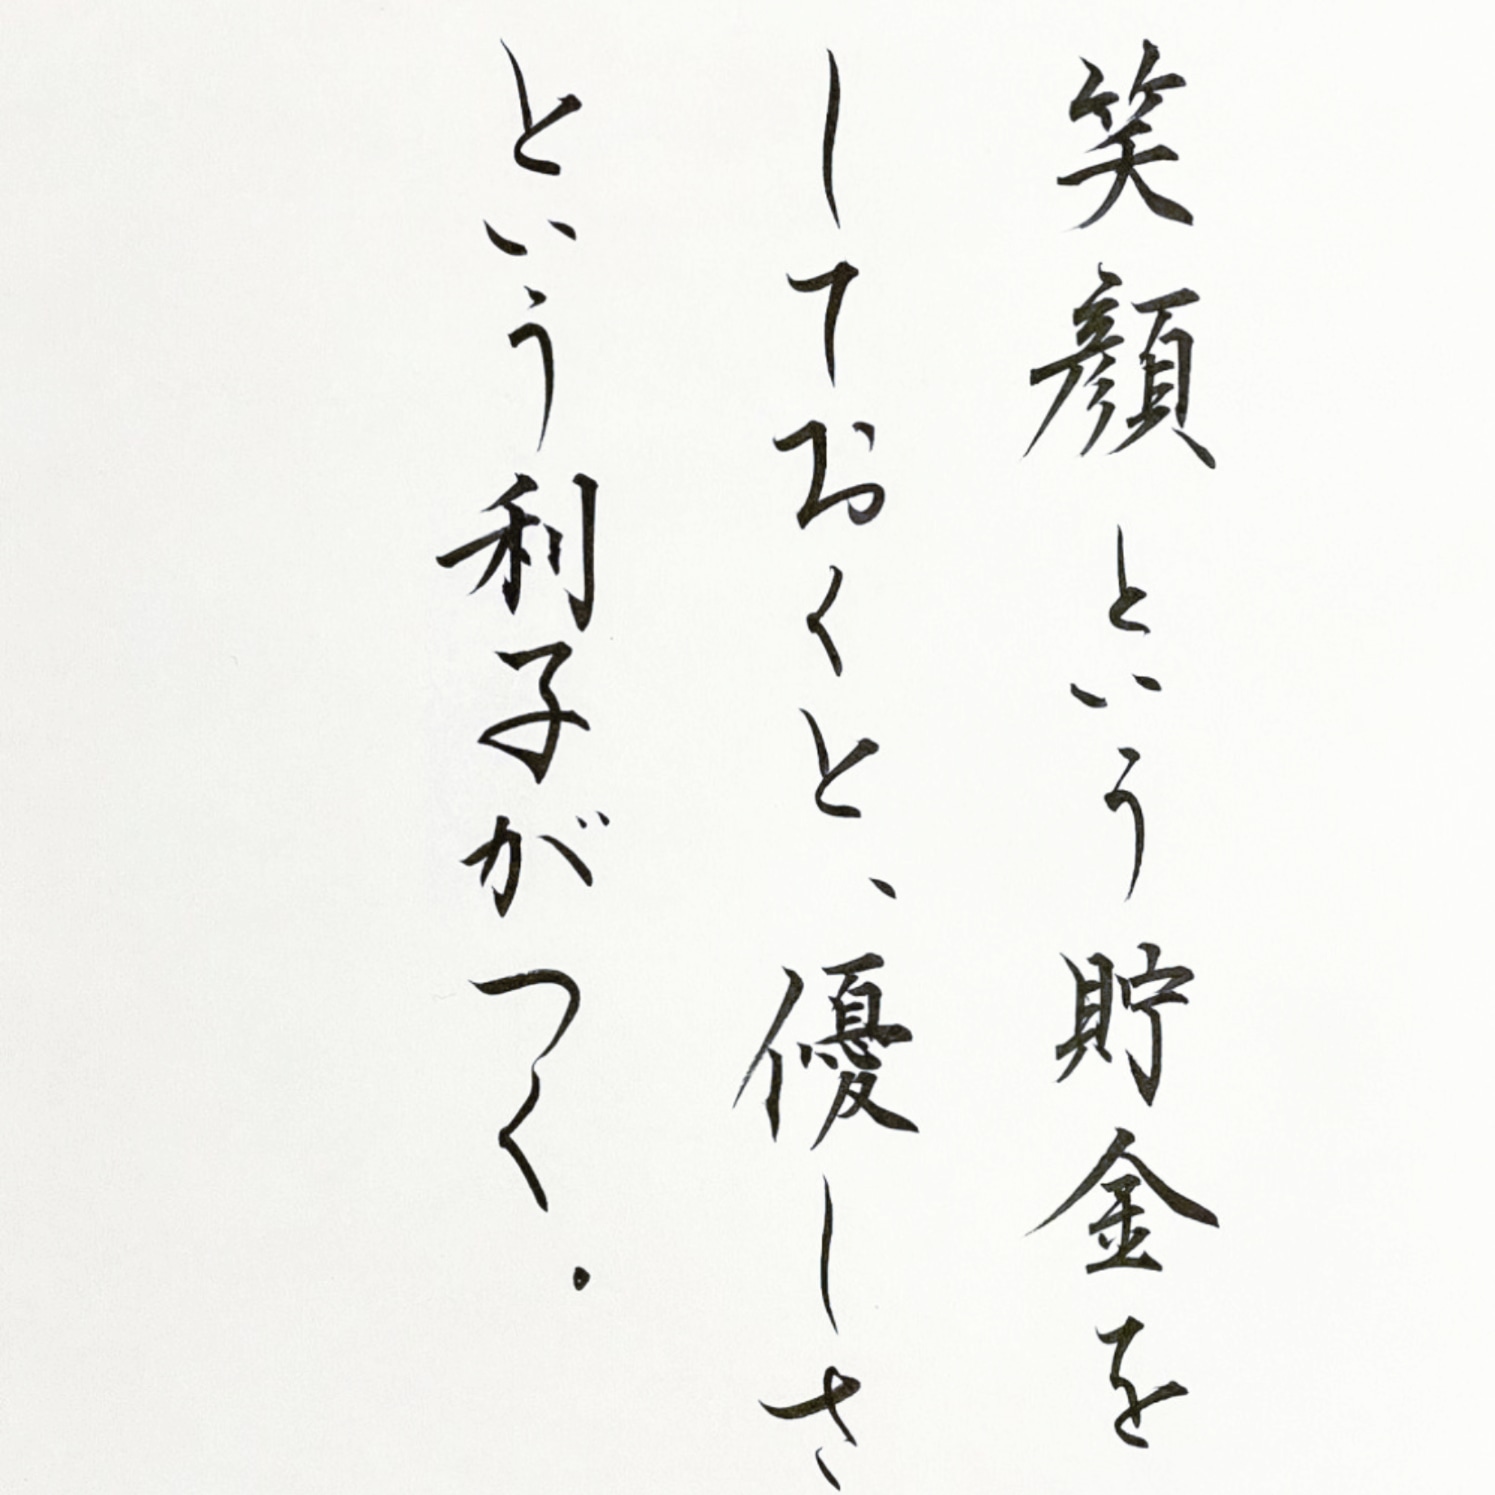 笑顔という貯金を
しておくと、優しさ
という利子がつく.